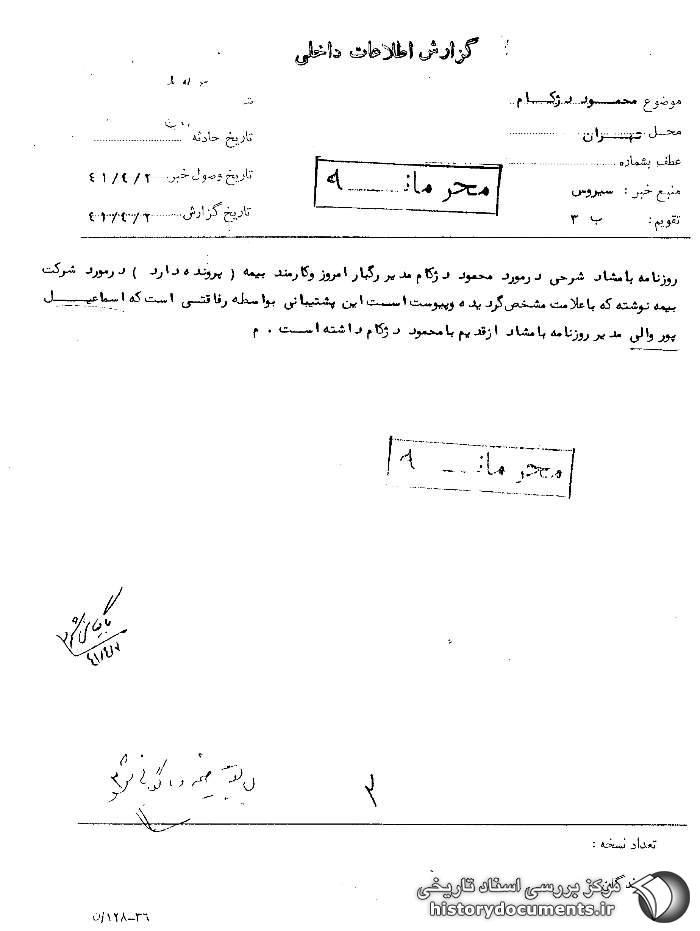 گزارش اطلاعات داخلی
موضوع محمود دژکام
محل تهران
تاریخ حادثه
عطف بشماره
منبع خبر : سیروس
تاریخ وصول خبر ۴۱/۴/۲
تقویم : ب ۳
تاریخ گزارش ۴۱/۴/۲
محرمانه
روزنامه بامشاد شرحی درمورد محمود دژکام مدیر رگبار امروز وکارمند بیمه ( پرونده دارد ) درمورد شرکت
بیمه نوشته که باعلامت مشخص گردیده وپیوست است این پشتیبانی بواسطه رفاقتی است که اسماعیل
پور والی مدیر روزنامه بامشاد ازقدیم بامحمود دژکام داشته است . م
محرمانه
بایگانی شود
۳
تعداد نسخه :
مرکز بررسی اسناد تاریخی
historydocuments.ir
۳۶-۱۲۸/ن